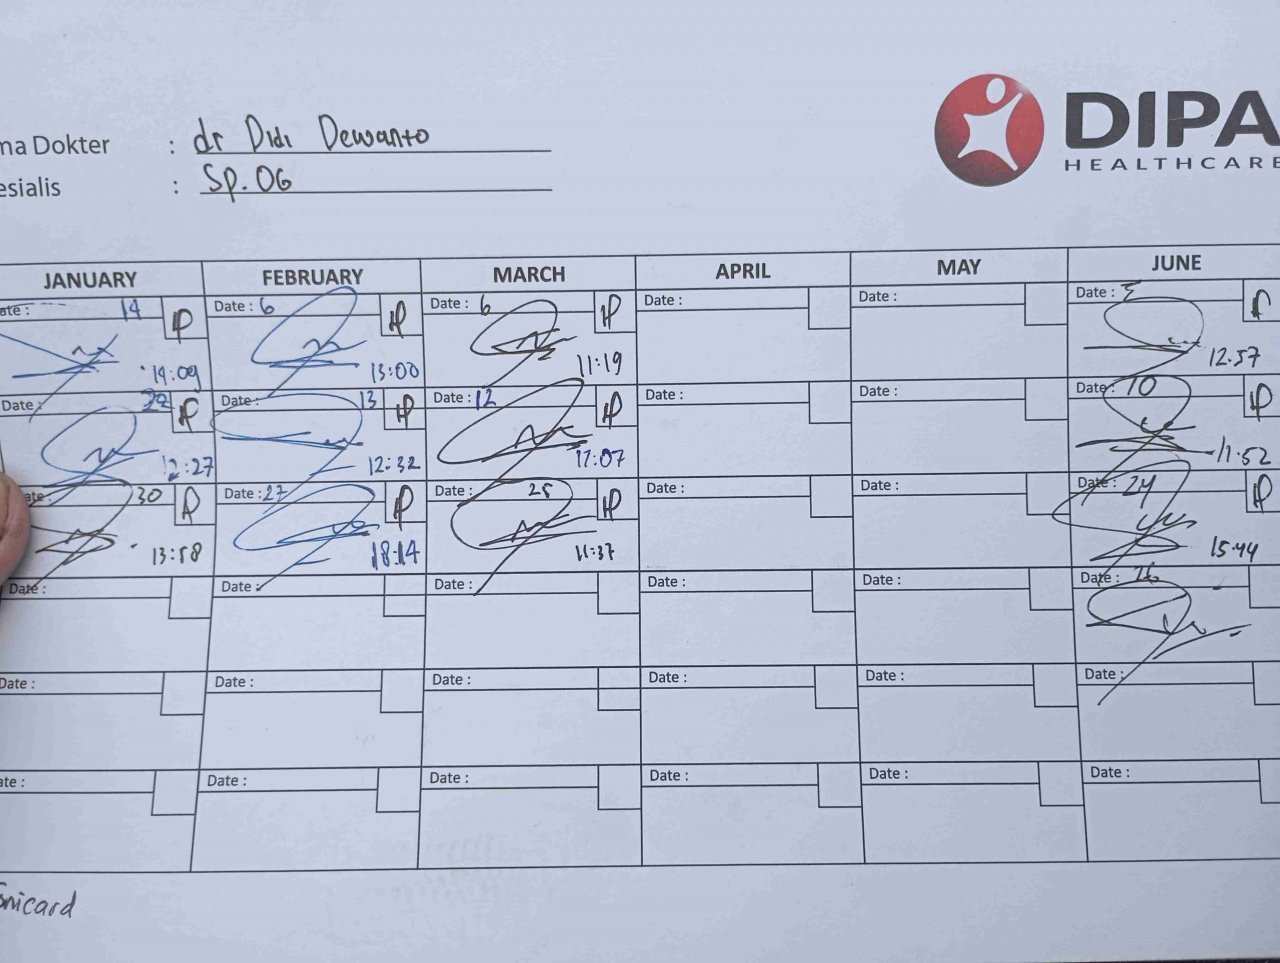 ma Dokter : dr Didi Dewanto
esialis : Sp.OG
DIPA
HEALTHCARE
JANUARY FEBRUARY MARCH APRIL MAY JUNE
ate : 14 Date : 6 Date : 6 Date : Date : Date : 3
14:09 13:00 11:19 12.57
Date : 22 Date : 13 Date : 12 Date : Date : Date : 10
12:27 12:32 17:07 11.52
ate : 30 Date : 27 Date : 25 Date : Date : Date : 24
13:58 18:14 11:37 15.44
Date : Date : Date : Date : Date : Date : 26
Date : Date : Date : Date : Date : Date :
ate : Date : Date : Date : Date : Date :
onicard